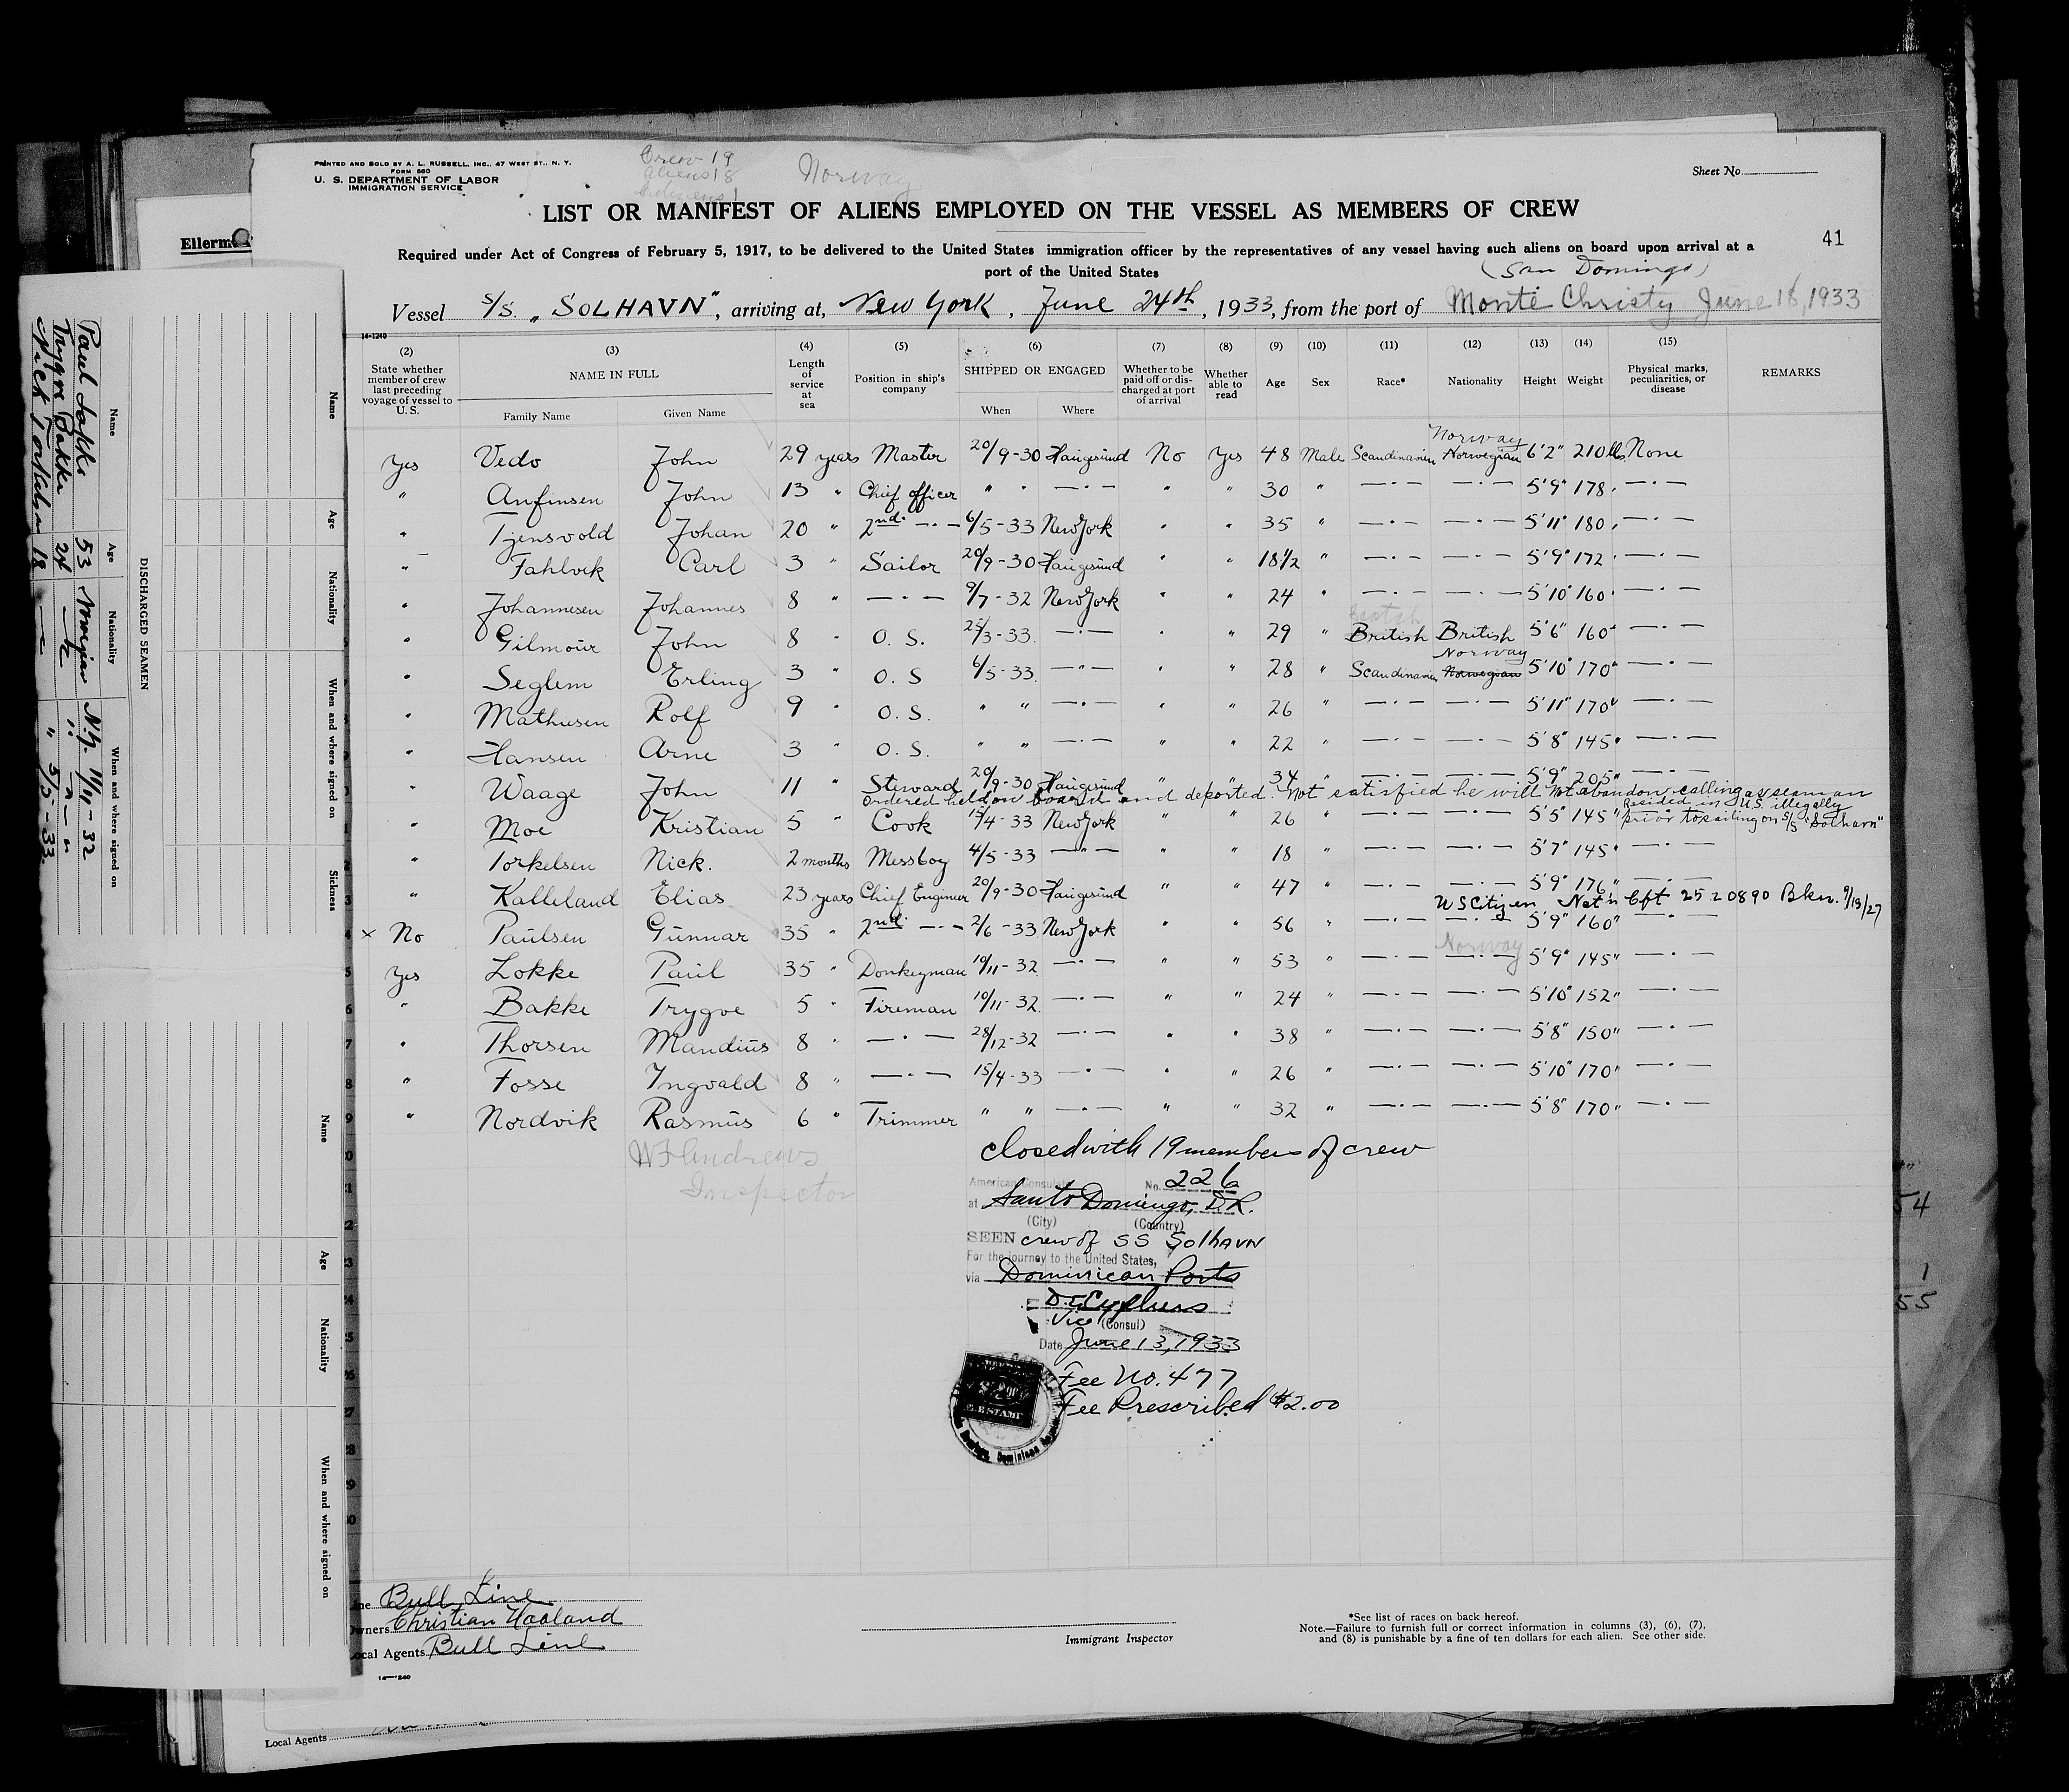 PRINTED AND SOLD BY A. L. RUSSELL, INC., 47 WEST ST., N. Y.
FORM 680
U. S. DEPARTMENT OF LABOR
IMMIGRATION SERVICE
Crew 19
aliens 18
Citizens 1
Norway
Sheet No.
LIST OR MANIFEST OF ALIENS EMPLOYED ON THE VESSEL AS MEMBERS OF CREW
Required under Act of Congress of February 5, 1917, to be delivered to the United States immigration officer by the representatives of any vessel having such aliens on board upon arrival at a
port of the United States
41
(San Domingo)
Vessel S/S. „SOLHAVN", arriving at, New York, June 24th, 1933, from the port of Monte Christy June 18, 1933
14-1240
(2) (3) (4) (5) (6) (7) (8) (9) (10) (11) (12) (13) (14) (15)
State whether member of crew last preceding voyage of vessel to U.S. NAME IN FULL Family Name Given Name Length of service at sea Position in ship's company SHIPPED OR ENGAGED When Where Whether to be paid off or discharged at port of arrival Whether able to read Age Sex Race* Nationality Height Weight Physical marks, peculiarities, or disease REMARKS
Norway
Yes Vedo John 29 years Master 20/9-30 Haugesund No Yes 48 Male Scandinavien Norwegian 6'2" 210 lbs None
" Anfinsen John 13 " Chief officer " " —·— " " 30 " —·— —·— 5'9" 178 " —·—
" Tjensvold Johan 20 " 2nd. —·— 6/5-33 New York " " 35 " —·— —·— 5'11" 180 " —·—
" Fahlvik Carl 3 " Sailor 20/9-30 Haugesund " " 18½ " —·— —·— 5'9" 172 " —·—
" Johannesen Johannes 8 " —·— 9/7-32 New York " " 24 " —·— —·— 5'10" 160 " —·—
" Gilmour John 8 " O. S. 25/3-33 —·— " " 29 " British British 5'6" 160 " —·—
Norway
" Seglem Erling 3 " O. S 6/5-33 —"— " " 28 " Scandinavien Norwegian 5'10" 170 " —·—
" Mathisen Rolf 9 " O. S. " " —·— " " 26 " —·— —·— 5'11" 170 " —·—
" Hansen Arne 3 " O. S. " " —·— " " 22 " —·— —·— 5'8" 145 " —·—
" Waage John 11 " Steward 20/9-30 Haugesund " " 34 " —·— —·— 5'9" 205 " —·—
ordered held on board and deported. Not satisfied he will not abandon calling as seaman
Resided in U.S. illegally
prior to sailing on S/S "Solhavn"
" Moe Kristian 5 " Cook 15/4-33 New York " " 26 " —·— —·— 5'5" 145 " —·—
" Torkelsen Nick. 2 months Messboy 4/5-33 —"— " " 18 " —·— —·— 5'7" 145 " —·—
" Kalleland Elias 23 years Chief Engineer 20/9-30 Haugesund " " 47 " —·— —·— 5'9" 176 " —·—
US Citizen Nat'n Cft 2520890 Bkn. 9/13/27
× No Paulsen Gunnar 35 " 2nd. —·— 2/6-33 New York " " 56 " —·— —·— 5'9" 160 " —·—
Norway
Yes Lokke Paul 35 " Donkeyman 10/11-32 —·— " " 53 " —·— —·— 5'9" 145 " —·—
" Bakke Trygve 5 " Fireman 10/11-32 —·— " " 24 " —·— —·— 5'10" 152 " —·—
" Thorsen Mandius 8 " —·— 28/12-32 —·— " " 38 " —·— —·— 5'8" 150 " —·—
" Fosse Ingvald 8 " —·— 15/4-33 —·— " " 26 " —·— —·— 5'10" 170 " —·—
" Nordvik Rasmus 6 " Trimmer " " —·— " " 32 " —·— —·— 5'8" 170 " —·—
W F Andrews
Inspector
closed with 19 members of crew
American Consulate No. 226
at Santo Domingo, D.R.
(City) (Country)
SEEN crew of SS Solhavn
For the journey to the United States,
via Dominican Ports
Vice (Consul)
Date June 13, 1933
Fee No. 477
Fee Prescribed $2.00
Bull Line
Owners Christian Haaland
Local Agents Bull Line
Immigrant Inspector
*See list of races on back hereof.
Note.—Failure to furnish full or correct information in columns (3), (6), (7),
and (8) is punishable by a fine of ten dollars for each alien. See other side.
DISCHARGED SEAMEN
Name Age Nationality When and where signed on
Paul Lokke 53 Norwegian N.Y. 11/11-32
Trygve Bakke 24
Nick Torkelsen 18 " 5/5-33
Name Age Nationality When and where signed on Sickness
Name Age Nationality When and where signed on
Local Agents